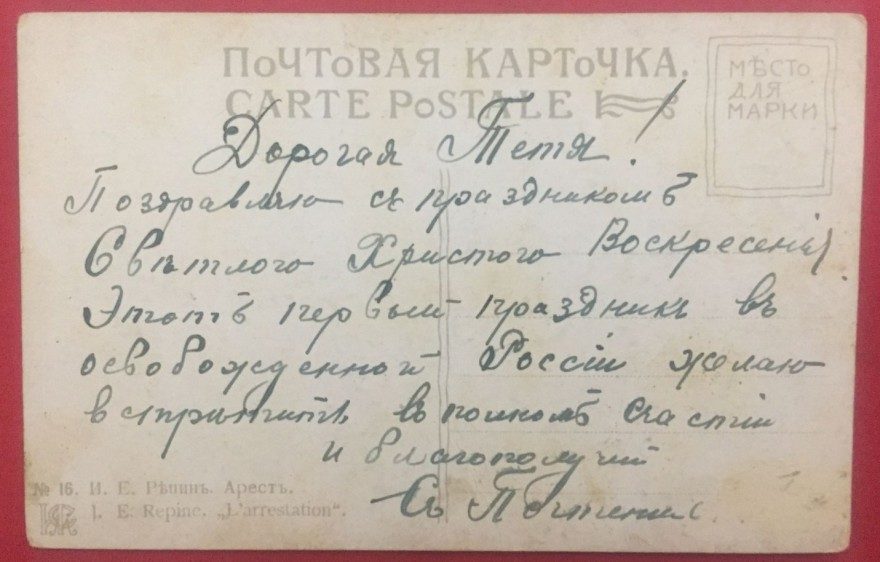 ПОЧТОВАЯ КАРТОЧКА.
CARTE POSTALE
МѢСТО
ДЛЯ
МАРКИ
Дорогая Тетя!
Поздравляю съ праздникомъ
Свѣтлого Христого Воскресенія
Этотъ первый праздникъ въ
освобожденной Россіи желаю
встрѣтить въ полномъ счастіи
и благополучіи
Съ
№ 16. И. Е. Рѣпинъ. Арестъ.
I. E. Repine. „L'arrestation".